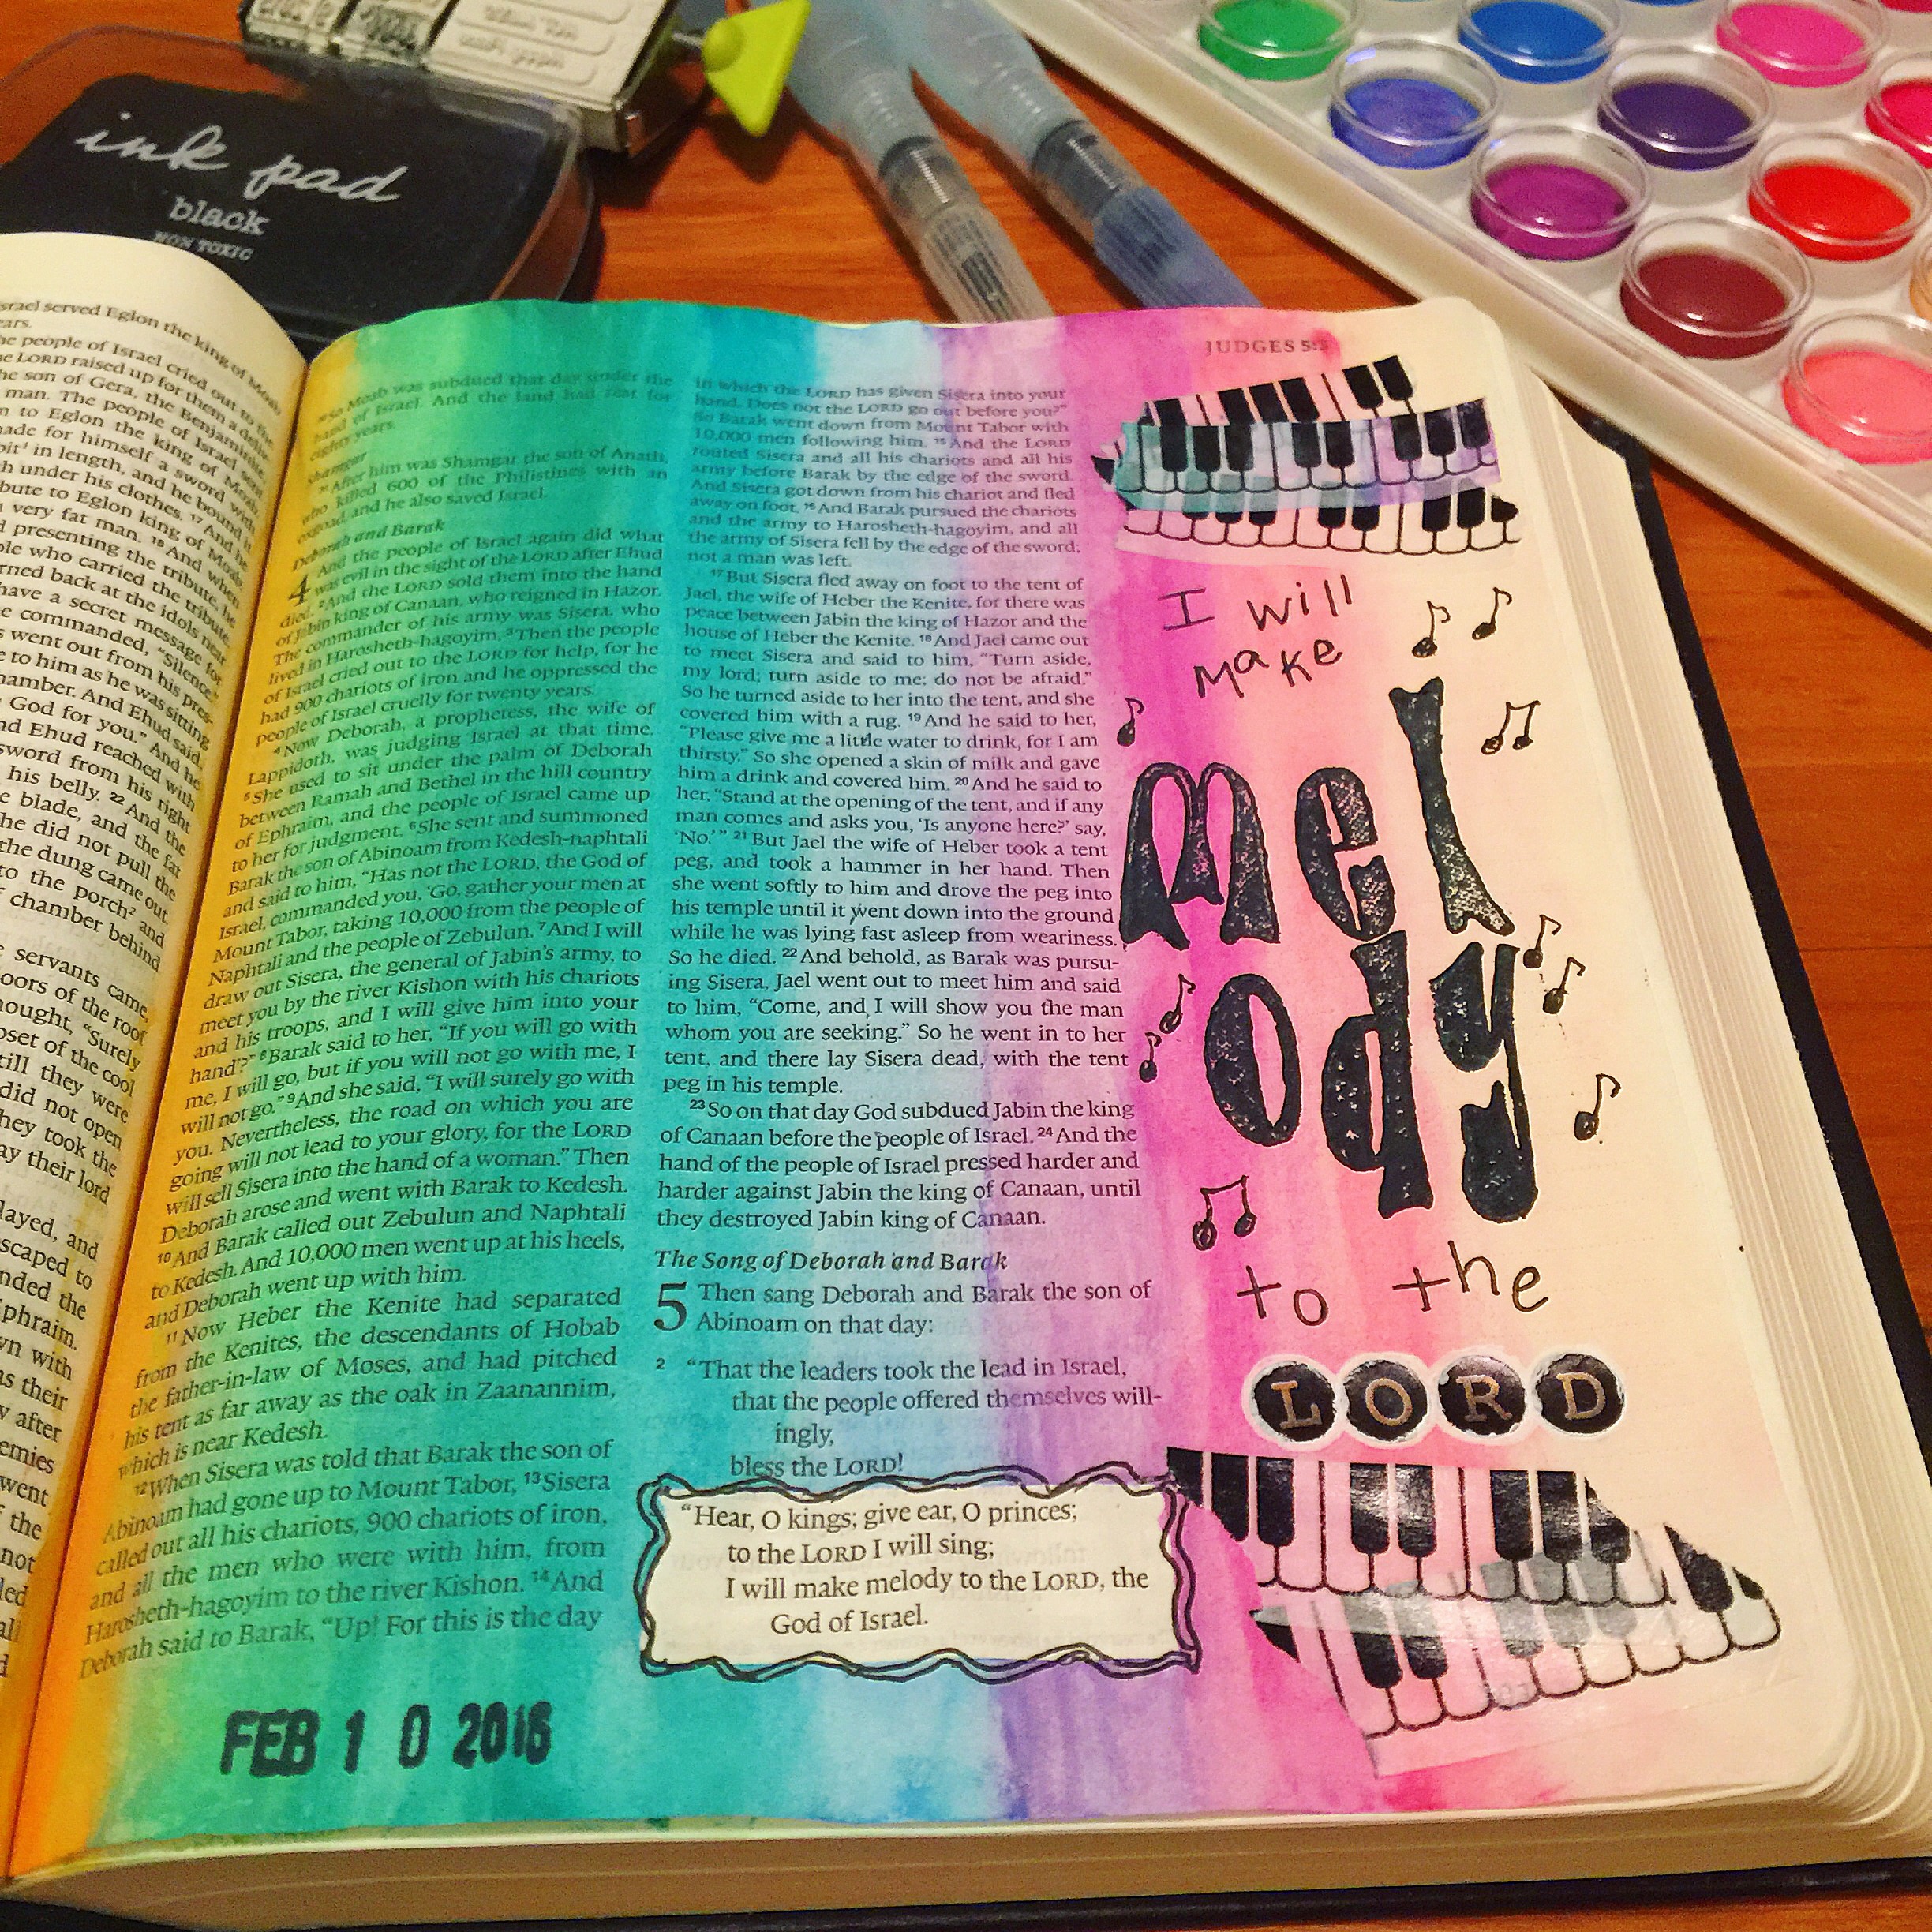 ink pad
black
NON TOXIC
srael served Eglon the king of Moab
ears.
he people of Israel cried out to the
he LORD raised up for them a deliv
he son of Gera, the Benjaminite
man. The people of Israel sent
n to Eglon the king of Moab
ade for himself a sword with
in length, and he bound it
h under his clothes. 17 And he
bute to Eglon king of Moab
very fat man. 18 And when
d presenting the tribute, he
ple who carried the tribute.
rned back at the idols near
have a secret message for
e commanded, "Silence."
s went out from his pres-
e to him as he was sitting
hamber. And Ehud said,
God for you." And he
nd Ehud reached with
sword from his right
his belly. 22 And the
e blade, and the fat
he did not pull the
the dung came out
to the porch2 and
chamber behind
e servants came,
oors of the roof
hought, "Surely
oset of the cool
till they were
did not open
hey took the
ay their lord
layed, and
scaped to
nded the
phraim.
wn with
as their
after
emies
went
the
not
led
JUDGES 5:
So Moab was subdued that day under the
hand of Israel. And the land had rest for
eighty years.
Shamgar
After him was Shamgar the son of Anath,
who killed 600 of the Philistines with an
oxgoad, and he also saved Israel.
Deborah and Barak
4 And the people of Israel again did what
was evil in the sight of the LORD after Ehud
died. 2 And the LORD sold them into the hand
of Jabin king of Canaan, who reigned in Hazor.
The commander of his army was Sisera, who
lived in Harosheth-hagoyim. 3 Then the people
of Israel cried out to the LORD for help, for he
had 900 chariots of iron and he oppressed the
people of Israel cruelly for twenty years.
4 Now Deborah, a prophetess, the wife of
Lappidoth, was judging Israel at that time.
5 She used to sit under the palm of Deborah
between Ramah and Bethel in the hill country
of Ephraim, and the people of Israel came up
to her for judgment. 6 She sent and summoned
Barak the son of Abinoam from Kedesh-naphtali
and said to him, "Has not the LORD, the God of
Israel, commanded you, 'Go, gather your men at
Mount Tabor, taking 10,000 from the people of
Naphtali and the people of Zebulun. 7 And I will
draw out Sisera, the general of Jabin's army, to
meet you by the river Kishon with his chariots
and his troops, and I will give him into your
hand'?" 8 Barak said to her, "If you will go with
me, I will go, but if you will not go with me, I
will not go." 9 And she said, "I will surely go with
you. Nevertheless, the road on which you are
going will not lead to your glory, for the LORD
will sell Sisera into the hand of a woman." Then
Deborah arose and went with Barak to Kedesh.
10 And Barak called out Zebulun and Naphtali
to Kedesh. And 10,000 men went up at his heels,
and Deborah went up with him.
11 Now Heber the Kenite had separated
from the Kenites, the descendants of Hobab
the father-in-law of Moses, and had pitched
his tent as far away as the oak in Zaanannim,
which is near Kedesh.
12 When Sisera was told that Barak the son of
Abinoam had gone up to Mount Tabor, 13 Sisera
called out all his chariots, 900 chariots of iron,
and all the men who were with him, from
Harosheth-hagoyim to the river Kishon. 14 And
Deborah said to Barak, "Up! For this is the day
FEB 10 2016
in which the LORD has given Sisera into your
hand. Does not the LORD go out before you?"
So Barak went down from Mount Tabor with
10,000 men following him. 15 And the LORD
routed Sisera and all his chariots and all his
army before Barak by the edge of the sword.
And Sisera got down from his chariot and fled
away on foot. 16 And Barak pursued the chariots
and the army to Harosheth-hagoyim, and all
the army of Sisera fell by the edge of the sword;
not a man was left.
17 But Sisera fled away on foot to the tent of
Jael, the wife of Heber the Kenite, for there was
peace between Jabin the king of Hazor and the
house of Heber the Kenite. 18 And Jael came out
to meet Sisera and said to him, "Turn aside,
my lord; turn aside to me; do not be afraid."
So he turned aside to her into the tent, and she
covered him with a rug. 19 And he said to her,
"Please give me a little water to drink, for I am
thirsty." So she opened a skin of milk and gave
him a drink and covered him. 20 And he said to
her, "Stand at the opening of the tent, and if any
man comes and asks you, 'Is anyone here?' say,
'No.'" 21 But Jael the wife of Heber took a tent
peg, and took a hammer in her hand. Then
she went softly to him and drove the peg into
his temple until it went down into the ground
while he was lying fast asleep from weariness.
So he died. 22 And behold, as Barak was pursu-
ing Sisera, Jael went out to meet him and said
to him, "Come, and I will show you the man
whom you are seeking." So he went in to her
tent, and there lay Sisera dead, with the tent
peg in his temple.
23 So on that day God subdued Jabin the king
of Canaan before the people of Israel. 24 And the
hand of the people of Israel pressed harder and
harder against Jabin the king of Canaan, until
they destroyed Jabin king of Canaan.
The Song of Deborah and Barak
5 Then sang Deborah and Barak the son of
Abinoam on that day:
2 "That the leaders took the lead in Israel,
that the people offered themselves will-
ingly,
bless the LORD!
"Hear, O kings; give ear, O princes;
to the LORD I will sing;
I will make melody to the LORD, the
God of Israel.
I will
make
mel
ody
to the
LORD